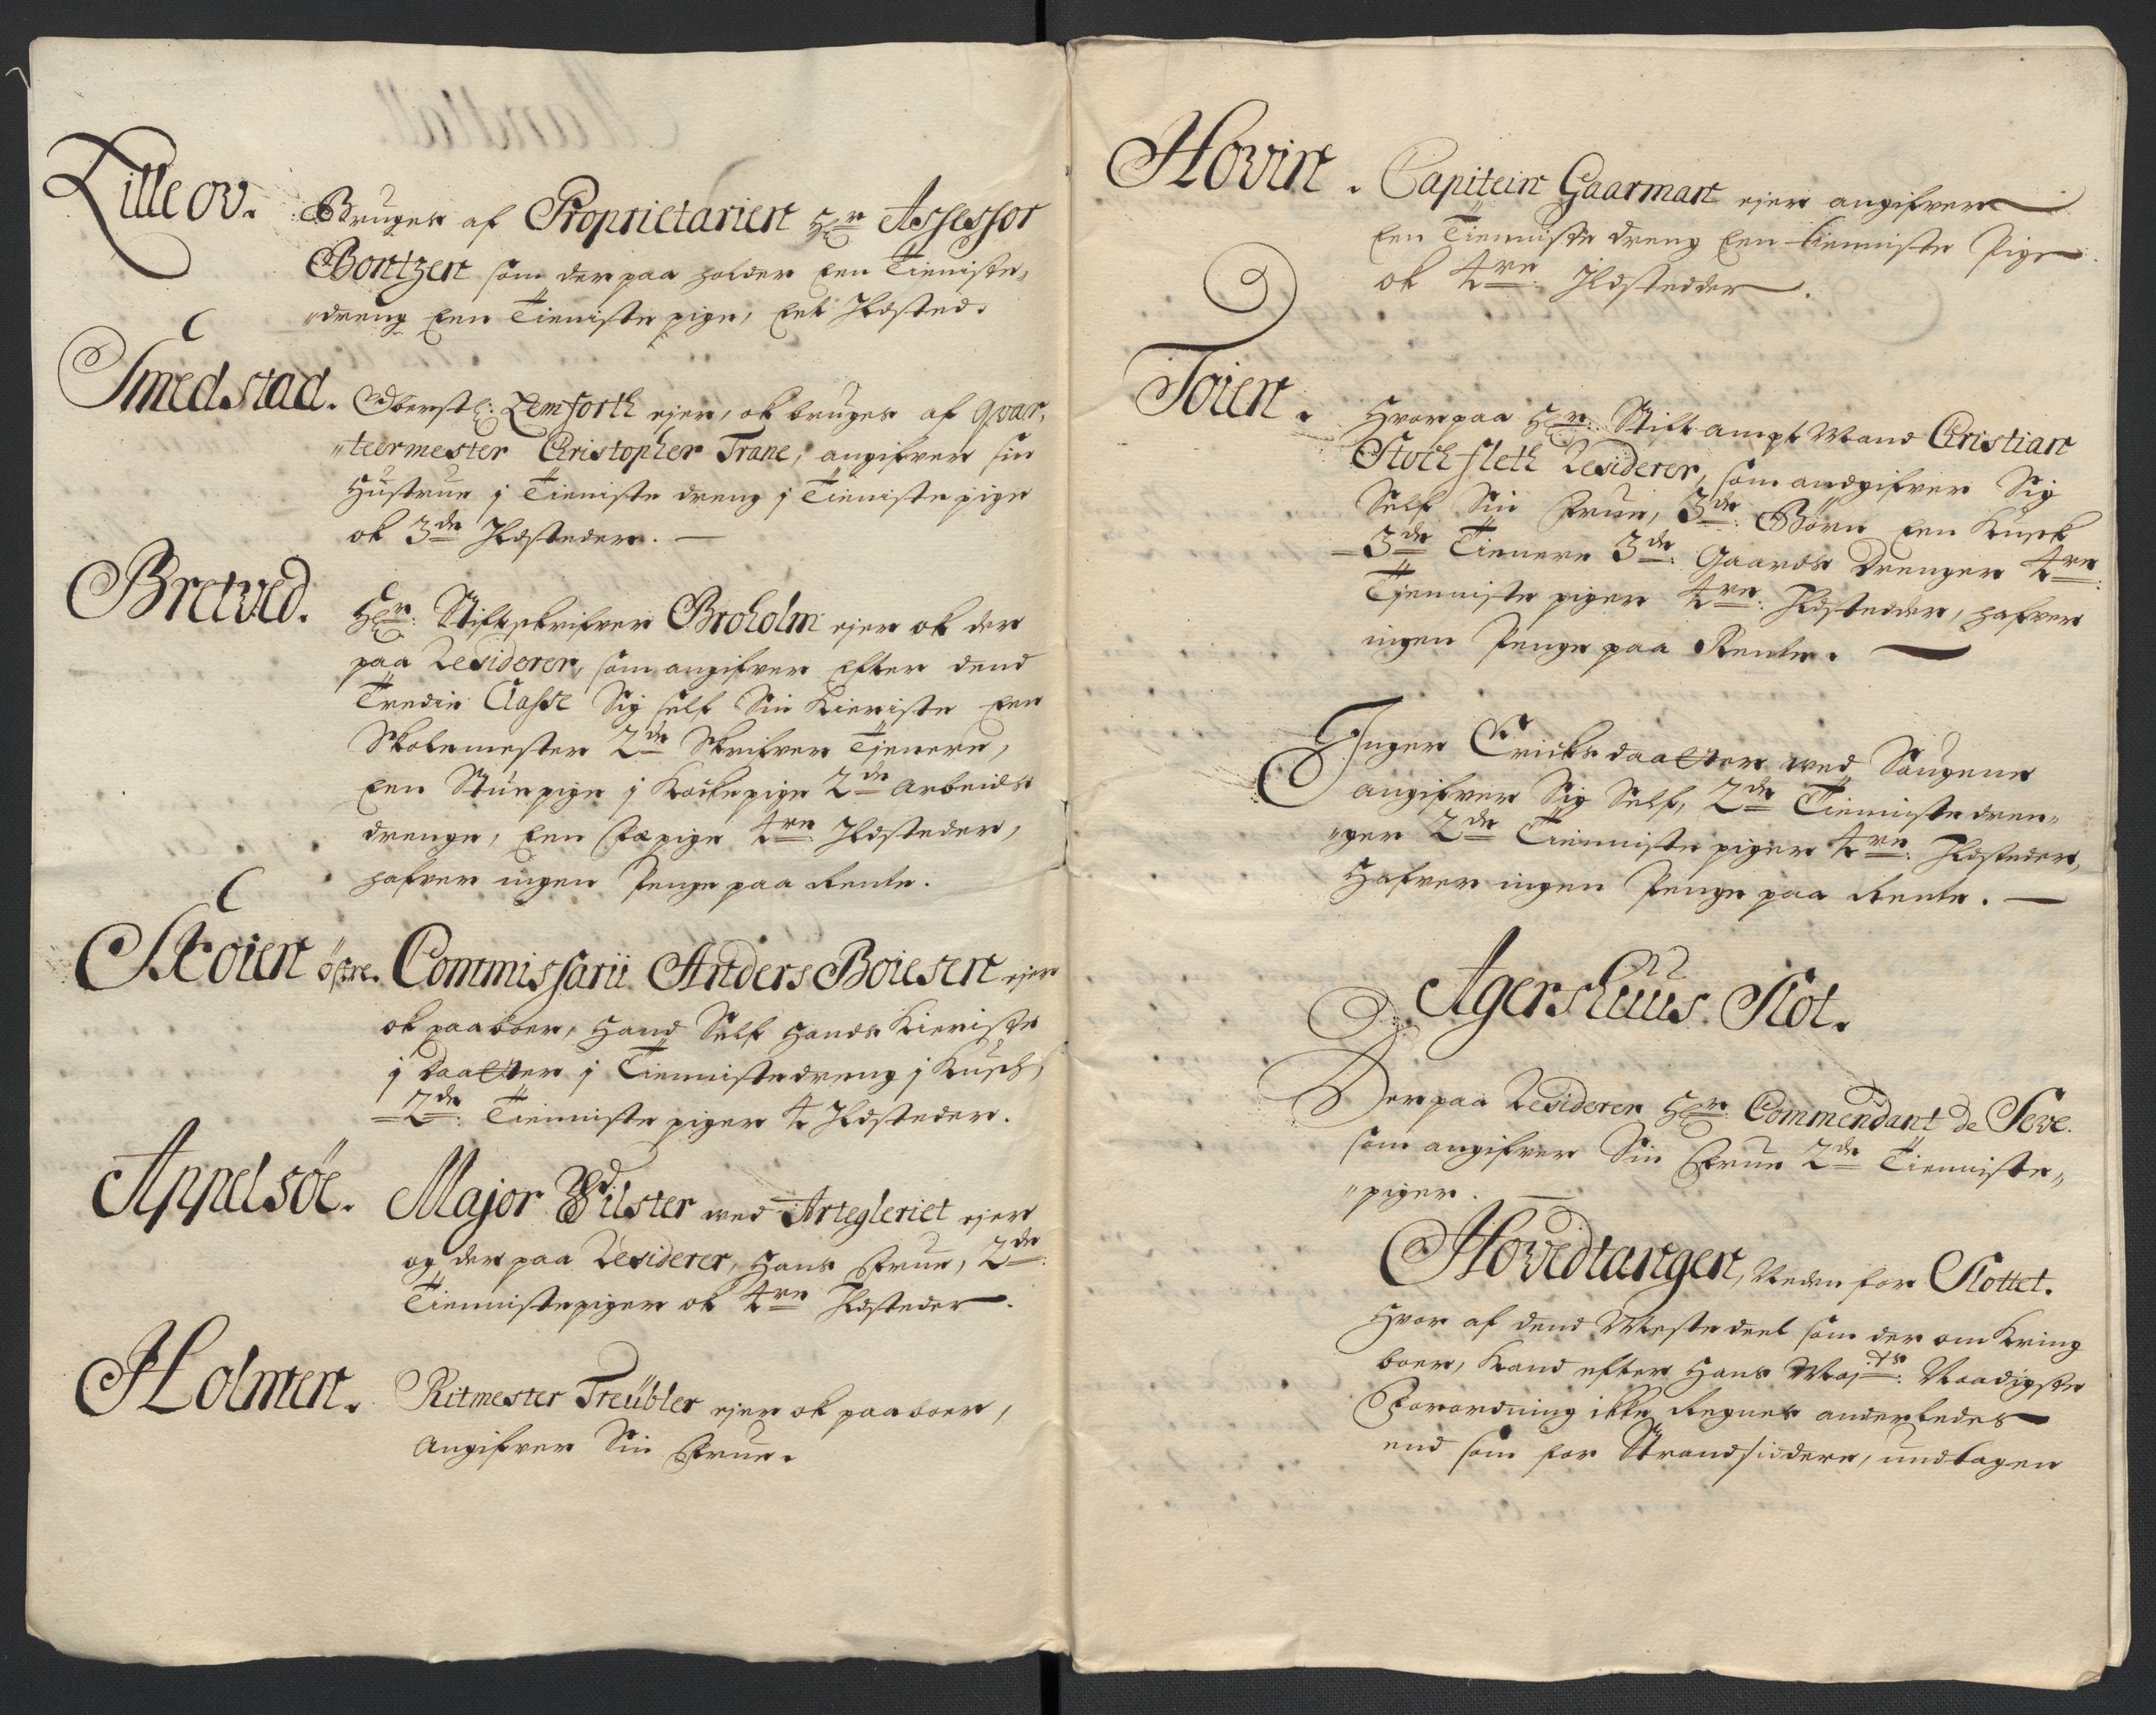 Lilleov. Bruges af Proprietarien Hr Assessor
Bontzen som der paa holder Een Tieniste,
"dreng Een Tieniste pige, Eet Ildsted.
Smedstad. Oberstl: Lemforth ejer, ok bruges af Qvar,
"teermester Christopher Trane, angifver sin
Hustrue j Tieniste dreng j Tieniste pige
ok 3de Ildsteder.
Bretved. Hr: Stiftskrifver Broholm ejer ok der
paa Residerer, som angifver Efter dend
Tredie Classe Sig self Sin Kieriste Een
Skolemester 2de Skrifver Tjenere,
Een Stuepige j Kockepige 2de Arbeids
drenge, Een Fæpige 4re Ildsteder,
hafver ingen Penge paa Rente.
Skoien östre. Commissarii Anders Boiesen ejer
ok paaboer, Hand Self Hands Kieriste
j Daatter j Tienniste dreng j Kusck,
2de: Tienniste piger 4 Ildsteder.
Appelsöe. Major Vilster wed Artegleriet ejer
og der paa Residerer, Hans Frue, 2de:
Tiennistepiger ok 4re Ildsteder.
Holmen. Ritmester Treübler ejer ok paaboer,
Angifver Sin Frue.
Hovin. Capitein Gaarman ejer angifver
Een Tienniste dreng Een tienniste Pige
ok 4re Ildstedder.
Toien. Hvorpaa Hr: Stiftamptmand Christian
Stockfleth Residerer, som andgifver Sig
Self Sin Frue, 3de: Börn Een Kusck
3de Tienere 3de: Gaards Drenger 4re:
Tjenniste piger 4re: Ildstedder, hafver
ingen Penge paa Rente.
Inger Ericks daatter wed Saugene
angifver Sig Self, 2de Tienniste dren,
"ger 2de Tienniste piger 4re: Ildsteder,
Hafver ingen Penge paa Rente.
Agershuus Slot.
Derpaa Residerer Hr Commendant de Seve.
som angifver Sin Frue 2de Tienniste,,
"piger.
Hovedtangen, Neden for Slottet.
Hvor af dend Meste deel som der omkring
boer, kand efter Hans Majts: Naadigste
Forordning ikke Regnes anderledes
end som for Strandsiddere, undtagen